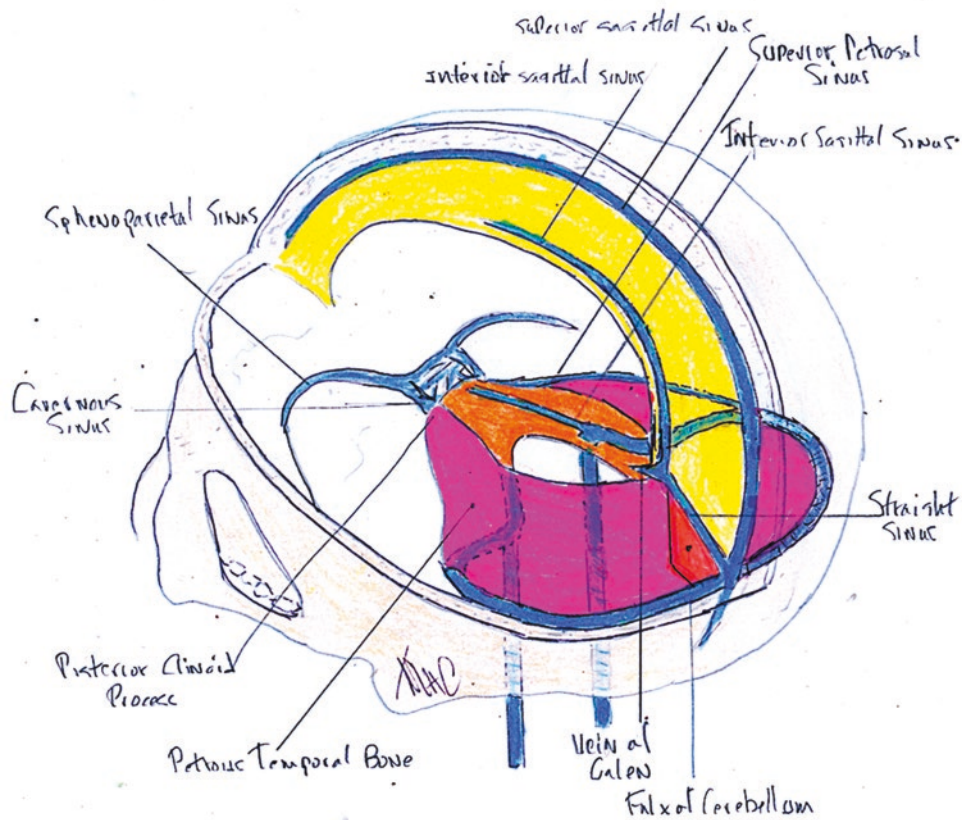 superior sagittal sinus
Interior sagittal sinus
Superior Petrosal
Sinus
Inferior Sagittal Sinus
Sphenoparietal Sinus
Cavernous
Sinus
Straight
Sinus
Posterior Clinoid
Process
Petrous Temporal Bone
Vein of
Galen
Falx of Cerebellum